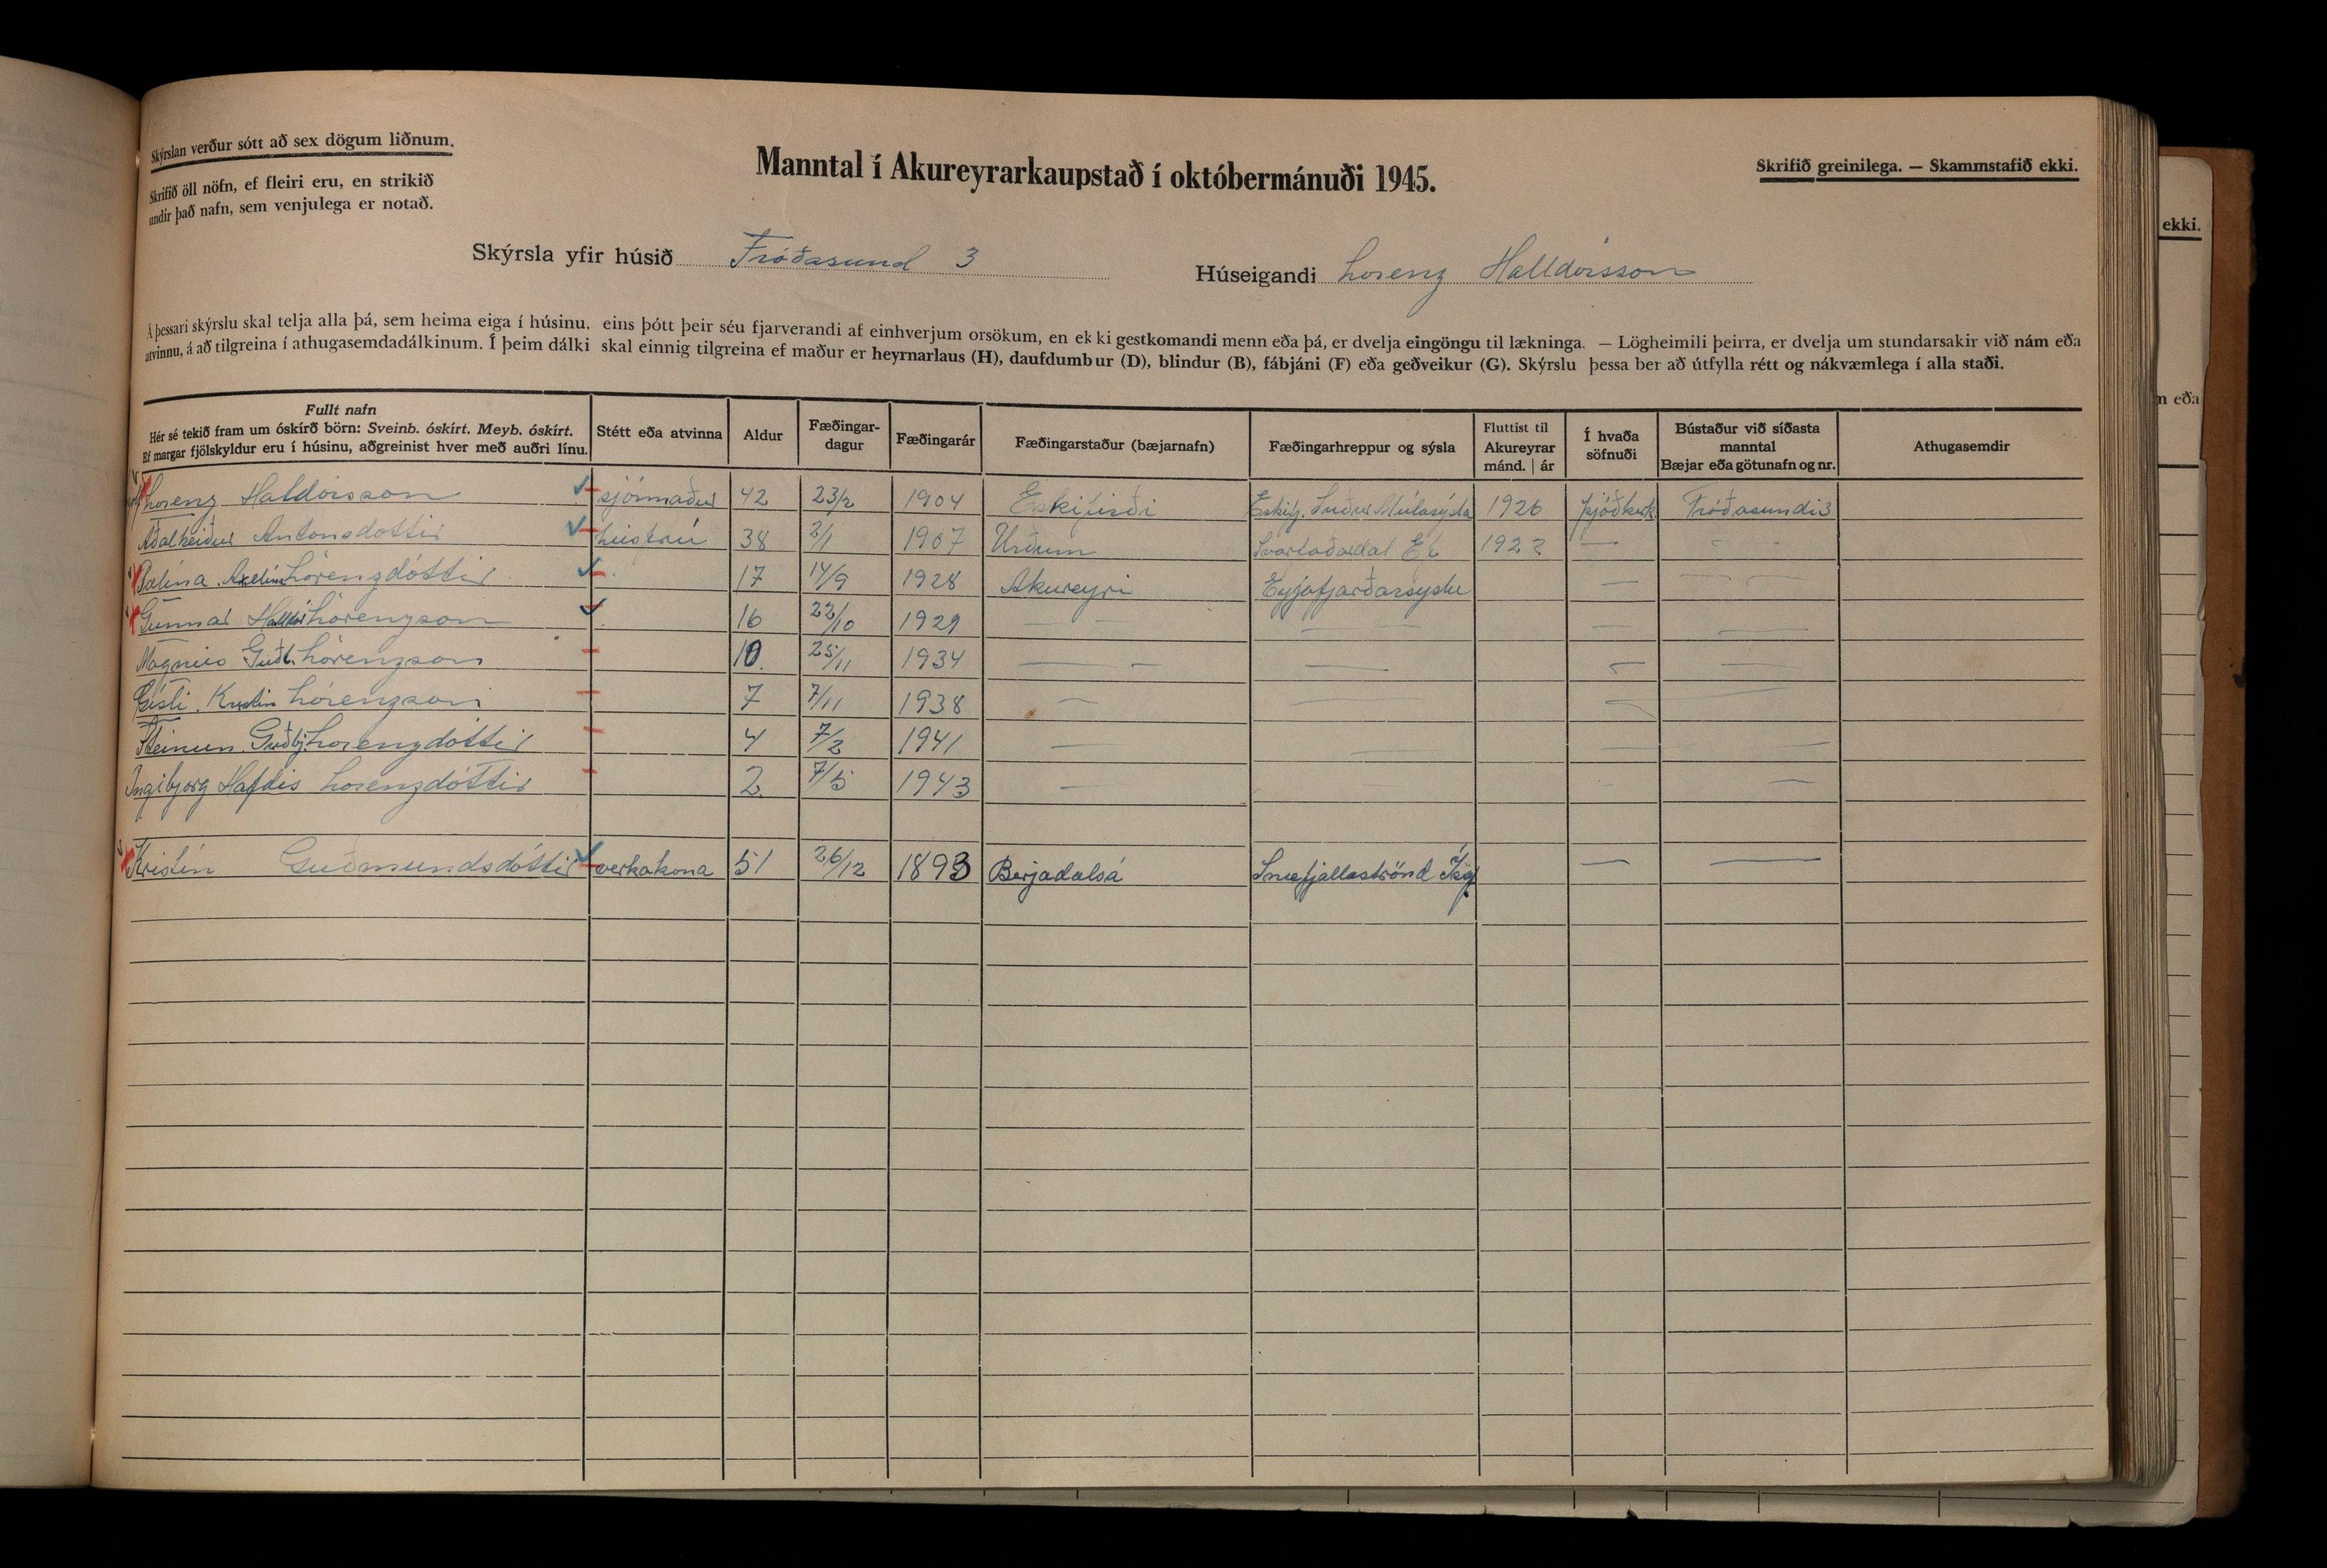 Skýrslan verður sótt að sex dögum liðnum.
Skrifið öll nöfn, ef fleiri eru, en strikið
undir það nafn, sem venjulega er notað.
Manntal í Akureyrarkaupstað í októbermánuði 1945.
Skrifið greinilega. — Skammstafið ekki.
Skýrsla yfir húsið Fróðasund 3
Húseigandi Lorenz Halldórsson
Á þessari skýrslu skal telja alla þá, sem heima eiga í húsinu, eins þótt þeir séu fjarverandi af einhverjum orsökum, en ekki gestkomandi menn eða þá, er dvelja eingöngu til lækninga. — Lögheimili þeirra, er dvelja um stundarsakir við nám eða
atvinnu, á að tilgreina í athugasemdadálkinum. Í þeim dálki skal einnig tilgreina ef maður er heyrnarlaus (H), daufdumbur (D), blindur (B), fábjáni (F) eða geðveikur (G). Skýrslu þessa ber að útfylla rétt og nákvæmlega í alla staði.
Fullt nafn
Hér sé tekið fram um óskírð börn: Sveinb. óskírt. Meyb. óskírt.
Ef margar fjölskyldur eru í húsinu, aðgreinist hver með auðri línu.
Stétt eða atvinna
Aldur
Fæðingar-
dagur
Fæðingarár
Fæðingarstaður (bæjarnafn)
Fæðingarhreppur og sýsla
Fluttist til
Akureyrar
mánd. | ár
Í hvaða
söfnuði
Bústaður við síðasta
manntal
Bæjar eða götunafn og nr.
Athugasemdir
Lorenz Halldórsson sjómaður 42 23/2 1904 Eskifirði Eskifj. Suður Múlasýsla 1926 þjóðkirk. Fróðasundi 3
Aðalheiður Antonsdottir húsfrú 38 2/1 1907 Urðum Svarfaðardal Ef 1922 — — —
Pálína Axelína Lórenzdóttir 17 14/9 1928 Akureyri Eyjafjarðarsyslu — — —
Gunnar Halldór Lórenzson 16 22/10 1929 — — — — — —
Magnús Guðl. Lórenzson 10. 25/11 1934 — — — — —
Gísli Kristin Lórenzson 7 7/11 1938 — — — —
Steinun Guðbj. Lorenzdóttir 4 7/2 1941 — — — —
Ingibjorg Hafdis Lorenzdóttir 2 7/5 1943 — — — —
Kristín Guðmundsdóttir verkakona 51 26/12 1893 Berjadalsá Snæfjallaströnd Ísf. — —
ekki.
eða